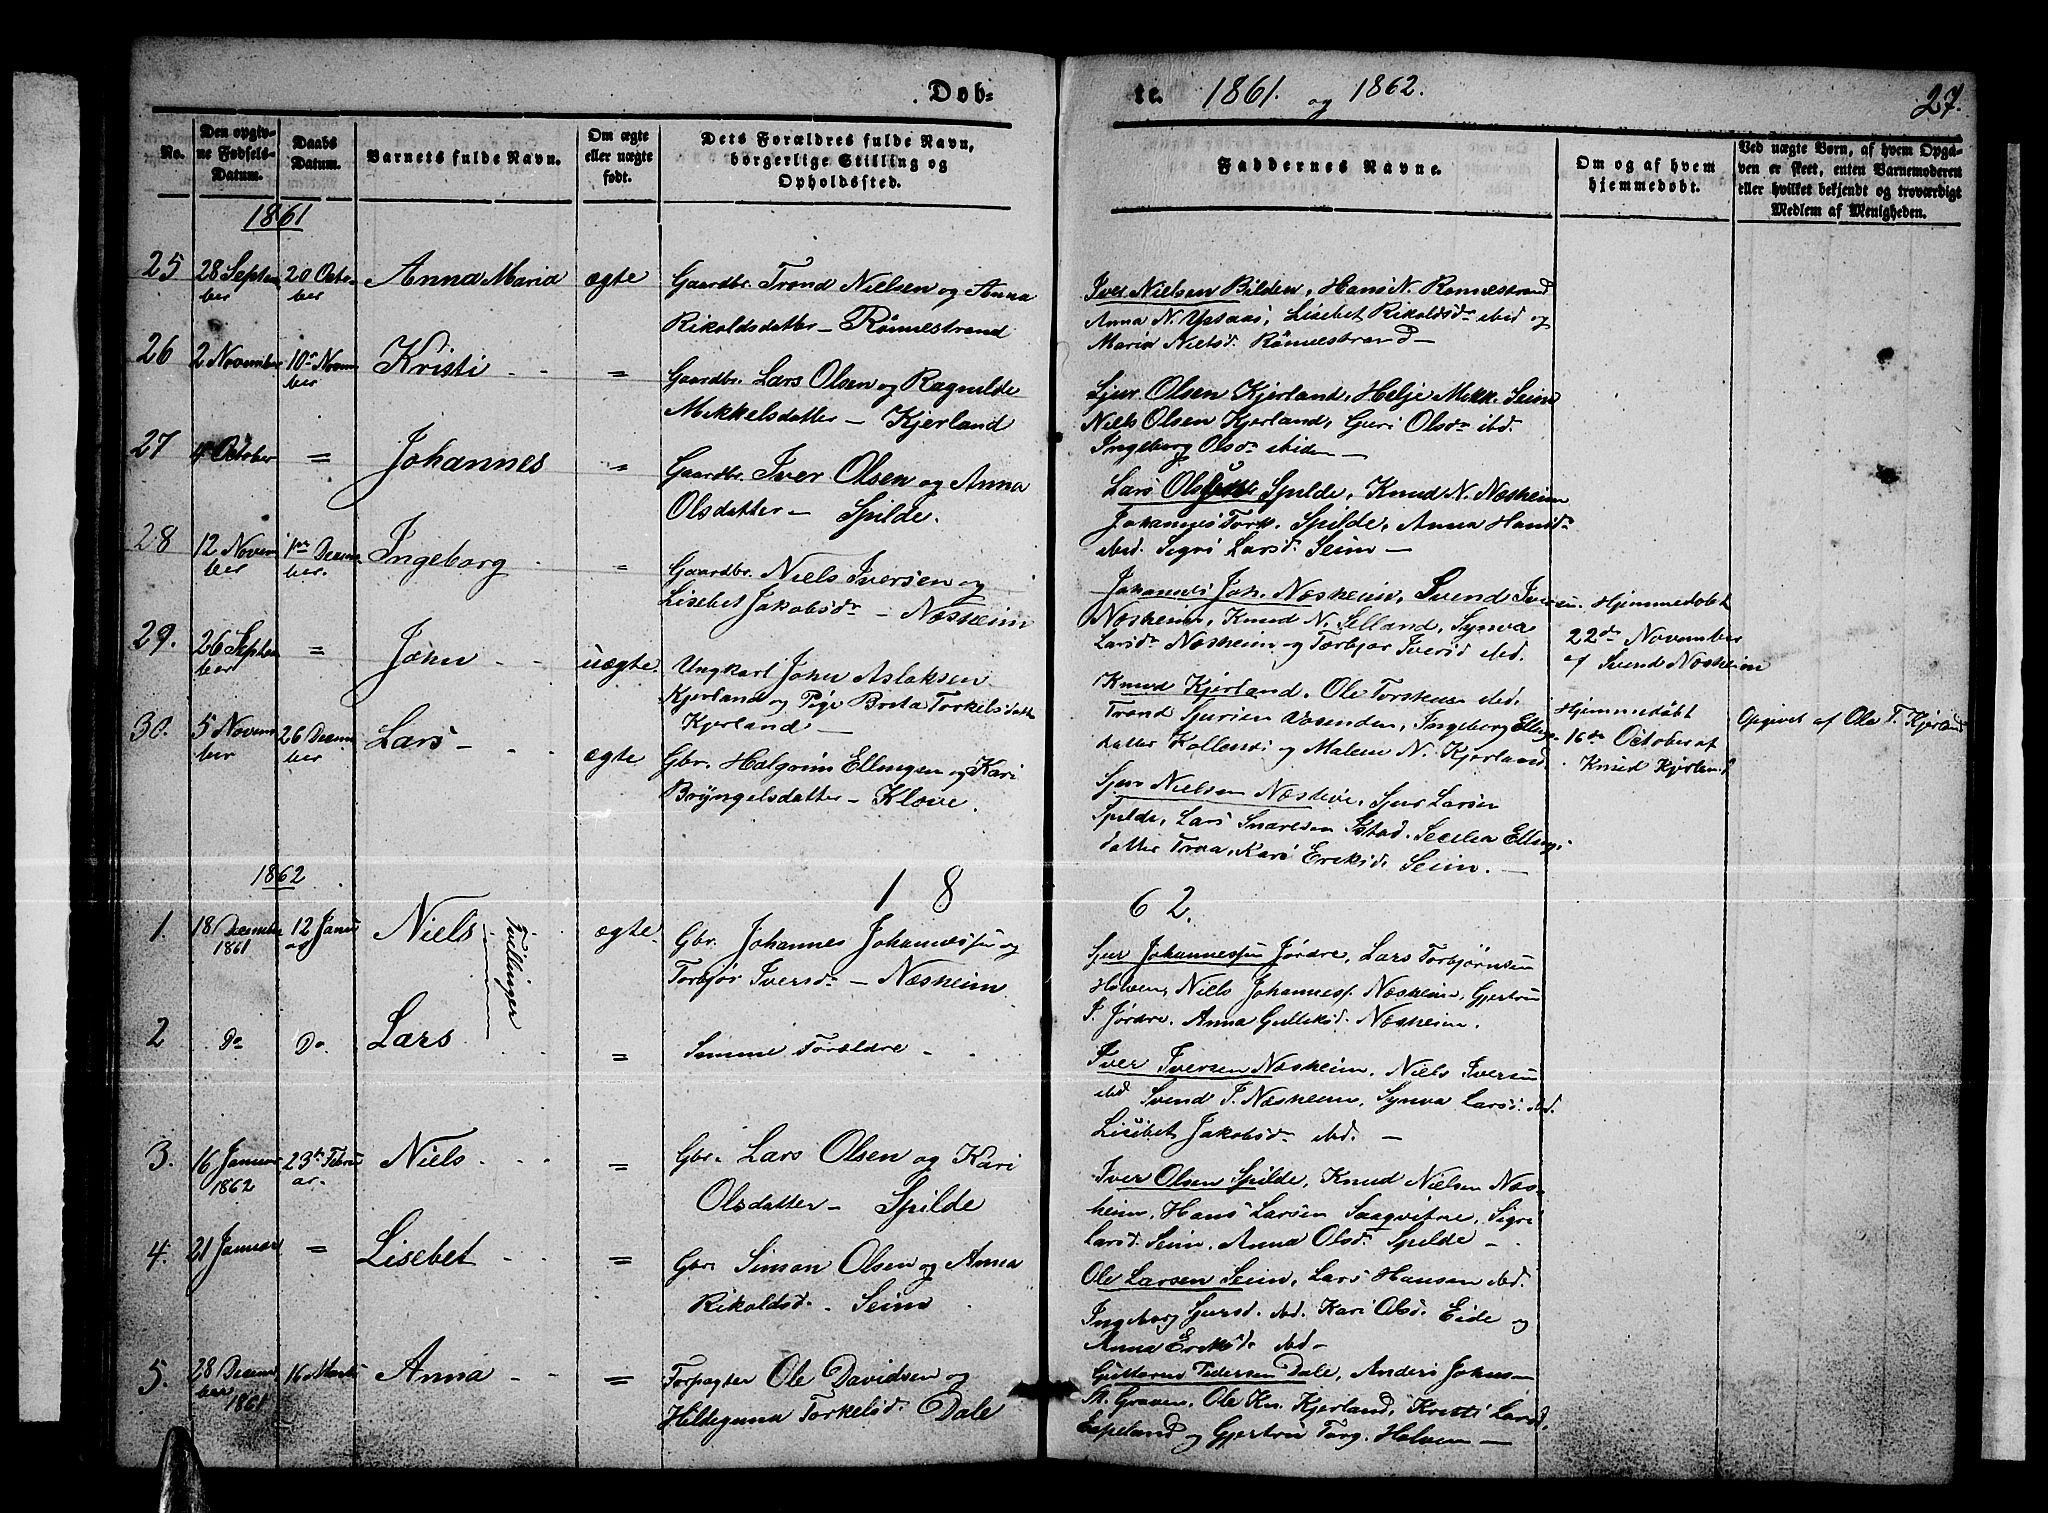 Døb-
te. 1861. og 1862.
27.
No.
Den opgiv-
ne Fødsels-
Datum.
Daabs
Datum.
Barnets fulde Navn.
Om ægte
eller uægte
født.
Dets Forældres fulde Navn,
borgerlige Stilling og
Opholdssted.
Faddernes Navne.
Om og af hvem
hjemmedøbt.
Ved uægte Børn, af hvem Opga-
ven er skeet, enten Barnemoderen
eller hvilket bekjendt og troværdigt
Medlem af Menigheden.
1861
25
28 Septem
ber
20 Octo-
ber
Anna Maria
ægte
Gaardbr. Trond Nielsen og Anna
Rikoldsdatter - Rönnestrand
Iver Nielsen Bilden, Hans N. Rönnestrand
Anna N. Ystaas, Lisebet Rikoldsdr ibid og
Maria Nielsd. Rönnestrand -
26
2 November
10de Novem
ber
Kristi
=
Gaardbr. Lars Olsen og Ragnilde
Mikkelsdatter - Kjerland
Sjur Olsen Kjerland, Helje Mikk. Seim
Niels Olsen Kjerland, Guri Olsdr ibd.
Ingeborg Olsdr ibidem -
27
4 October
=
Johannes
=
Gaardbr. Iver Olsen og Anna
Olsdatter - Spilde.
Lars Olsen Spilde, Knud N. Næsheim
Johannes Tork. Spilde, Anna Hansdr
ibid. Sigri Larsd. Seim -
28
12 Novem
ber
1ste Decem-
ber.
Ingeborg
=
Gaardbr. Niels Iversen og
Lisebet Jakobsdr - Næsheim
Johannes Joh. Næsheim, Svend Iversen
Næsheim, Knud N. Selland, Synva
Larsdr Næsheim og Torbjør Iversd ibid.
Hjemmedøbt
22de November
af Svend Næsheim
29.
26 Septem
ber
=
John
uægte
Ungkarl John Aslaksen
Kjerland og Pige Brita Torkelsdatt
Kjerland -
Knud Kjerland, Ole Torkelsen ibid.
Trond Sjursen Vasenden, Ingeborg Ellings
datter Kollenes og Malene N. Kjerland.
Hjemmedøbt
16de October af
Knud Kjerland
Opgivet af Ole T. Kjerland
30.
5 Novem
ber
26 Decem
ber
Lars
ægte
Gbr. Halgrim Ellingsen og Kari
Bryngelsdatter - Klove.
Sjur Nielsen Næsheim, Sjur Larsen
Spilde, Lars Sjursen Ystad. Secelia Ellings
datter Trøa, Kari Eriksdr. Seim. -
1862
18
62.
1.
18 December
1861
12 Janu
ar
Niels
Tvillinger
ægte
Gbr. Johannes Johannessen og
Torbjør Iversdr - Næsheim
Sjur Johannessen Jördre, Lars Torbjörnsen
Halven, Niels Johannesf. Næsheim, Gjertru
I. Jördre. Anna Gulliksd. Næsheim.
2
Do
Do
Lars
=
Samme Forældre
Iver Iversen Næsheim, Niels Iversen
ibd Svend I. Næsheim, Synva Larsd. ibd.
Lisebet Jakobsdr ibd. -
3.
16 Januar
1862
23de Febru
ar.
Niels
=
Gbr. Lars Olsen og Kari
Olsdatter - Spilde
Iver Olsen Spilde, Knud Nielsen Næs-
heim, Hans Larsen Saaqvitne, Sigri
Larsd. Seim. Anna Olsdr Spilde -
4.
21 Januar
=
Lisebet
=
Gbr. Simon Olsen og Anna
Rikoldsd. Seim
Ole Larsen Seim, Lars Hansen ibd.
Ingeborg Sjursd. ibd. Kari Olsd. Eide og
Anna Eriksdr ibd -
5.
28 Decem
ber
1861
16 Marts
Anna
=
Forpagter Ole Davidsen og
Hildegunna Torkelsd. Dale
Guttorm Pedersen Dale, Anders Johns-
St. Graven, Ole Kn. Kjerland, Kristi Larsd.
Espeland og Gjertru Torg. Halven -